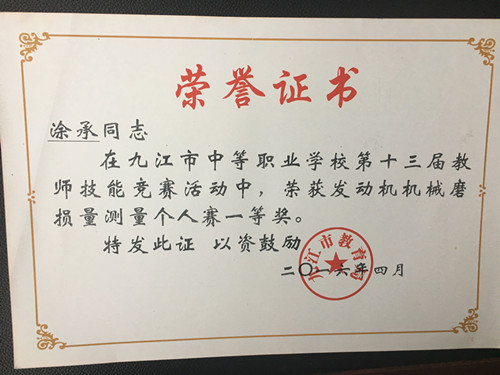 荣誉证书
涂承同志
在九江市中等职业学校第十三届教
师技能竞赛活动中，荣获发动机机械磨
损量测量个人赛一等奖。
特发此证 以资鼓励
九江市教育局
二〇一六年四月